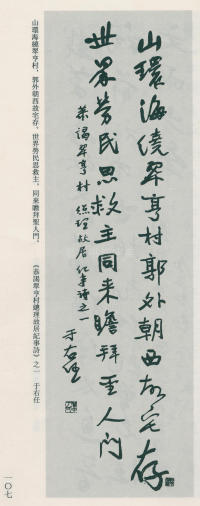 山環海繞翠亨村郭外朝西故宅存
世界勞民思救主同來瞻拜聖人門
恭謁翠亨村總理故居紀事詩之一 于右任
山環海繞翠亨村，郭外朝西故宅存，世界勞民思救主，同來瞻拜聖人門。
《恭謁翠亨村總理故居紀事詩》之一 于右任
一〇七